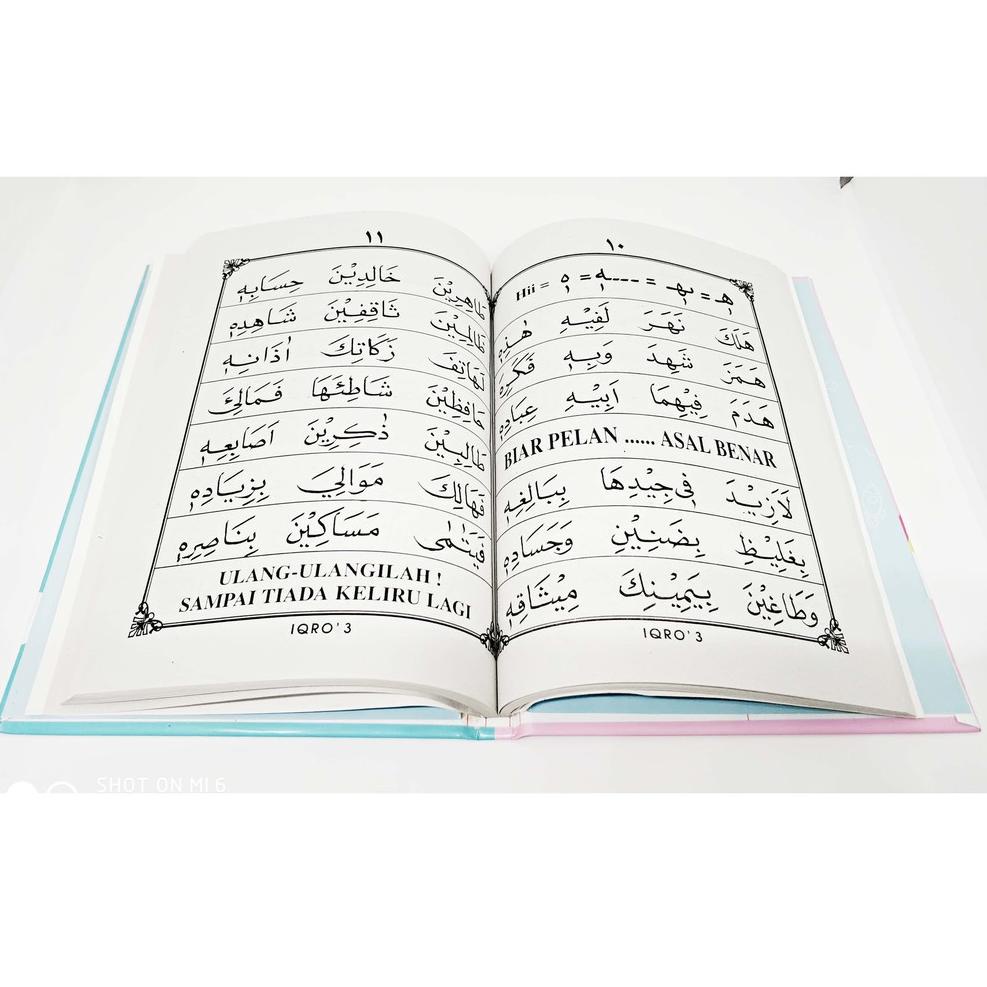 ١٠
هِ = ـهِـ = ـــهِ = هِ = Hii
هَلَكَ نَهَرَ لَفِيْهِ هٰذِهِ
هَمَزَ شَهِدَ وَبِهِ
هَدَمَ فِيْهِمَا اَبِيْهِ عِبَادِهِ
BIAR PELAN ...... ASAL BENAR
لَازِيْدَ فِيْ جِيْدِهَا بِبَالِغِهِ
بِغَلِيْظِ بِضَنِيْنِ وَجَسَادِهِ
وَطَاغِيْنَ بِيَمِيْنِكَ مِيْثَاقِهِ
IQRO' 3
١١
طَاهِرِيْنَ خَالِدِيْنَ حِسَابِهِ
ظَالِمِيْنَ ثَاقِفِيْنَ شَاهِدِهِ
لَهَاتِفَ زَكَاتِكَ اٰذَانِهِ
حَافِظِيْنَ شَاطِئَهَا فَمَالِئَ
طَالِبِيْنَ ذٰكِرِيْنَ اَصَابِعِهِ
فَهَالِكَ مَوَالِيَ بِزِيَادِهِ
فَيَتٰمٰى مَسَاكِيْنَ بِنَاصِرِهِ
ULANG-ULANGILAH !
SAMPAI TIADA KELIRU LAGI
IQRO' 3
SHOT ON MI 6